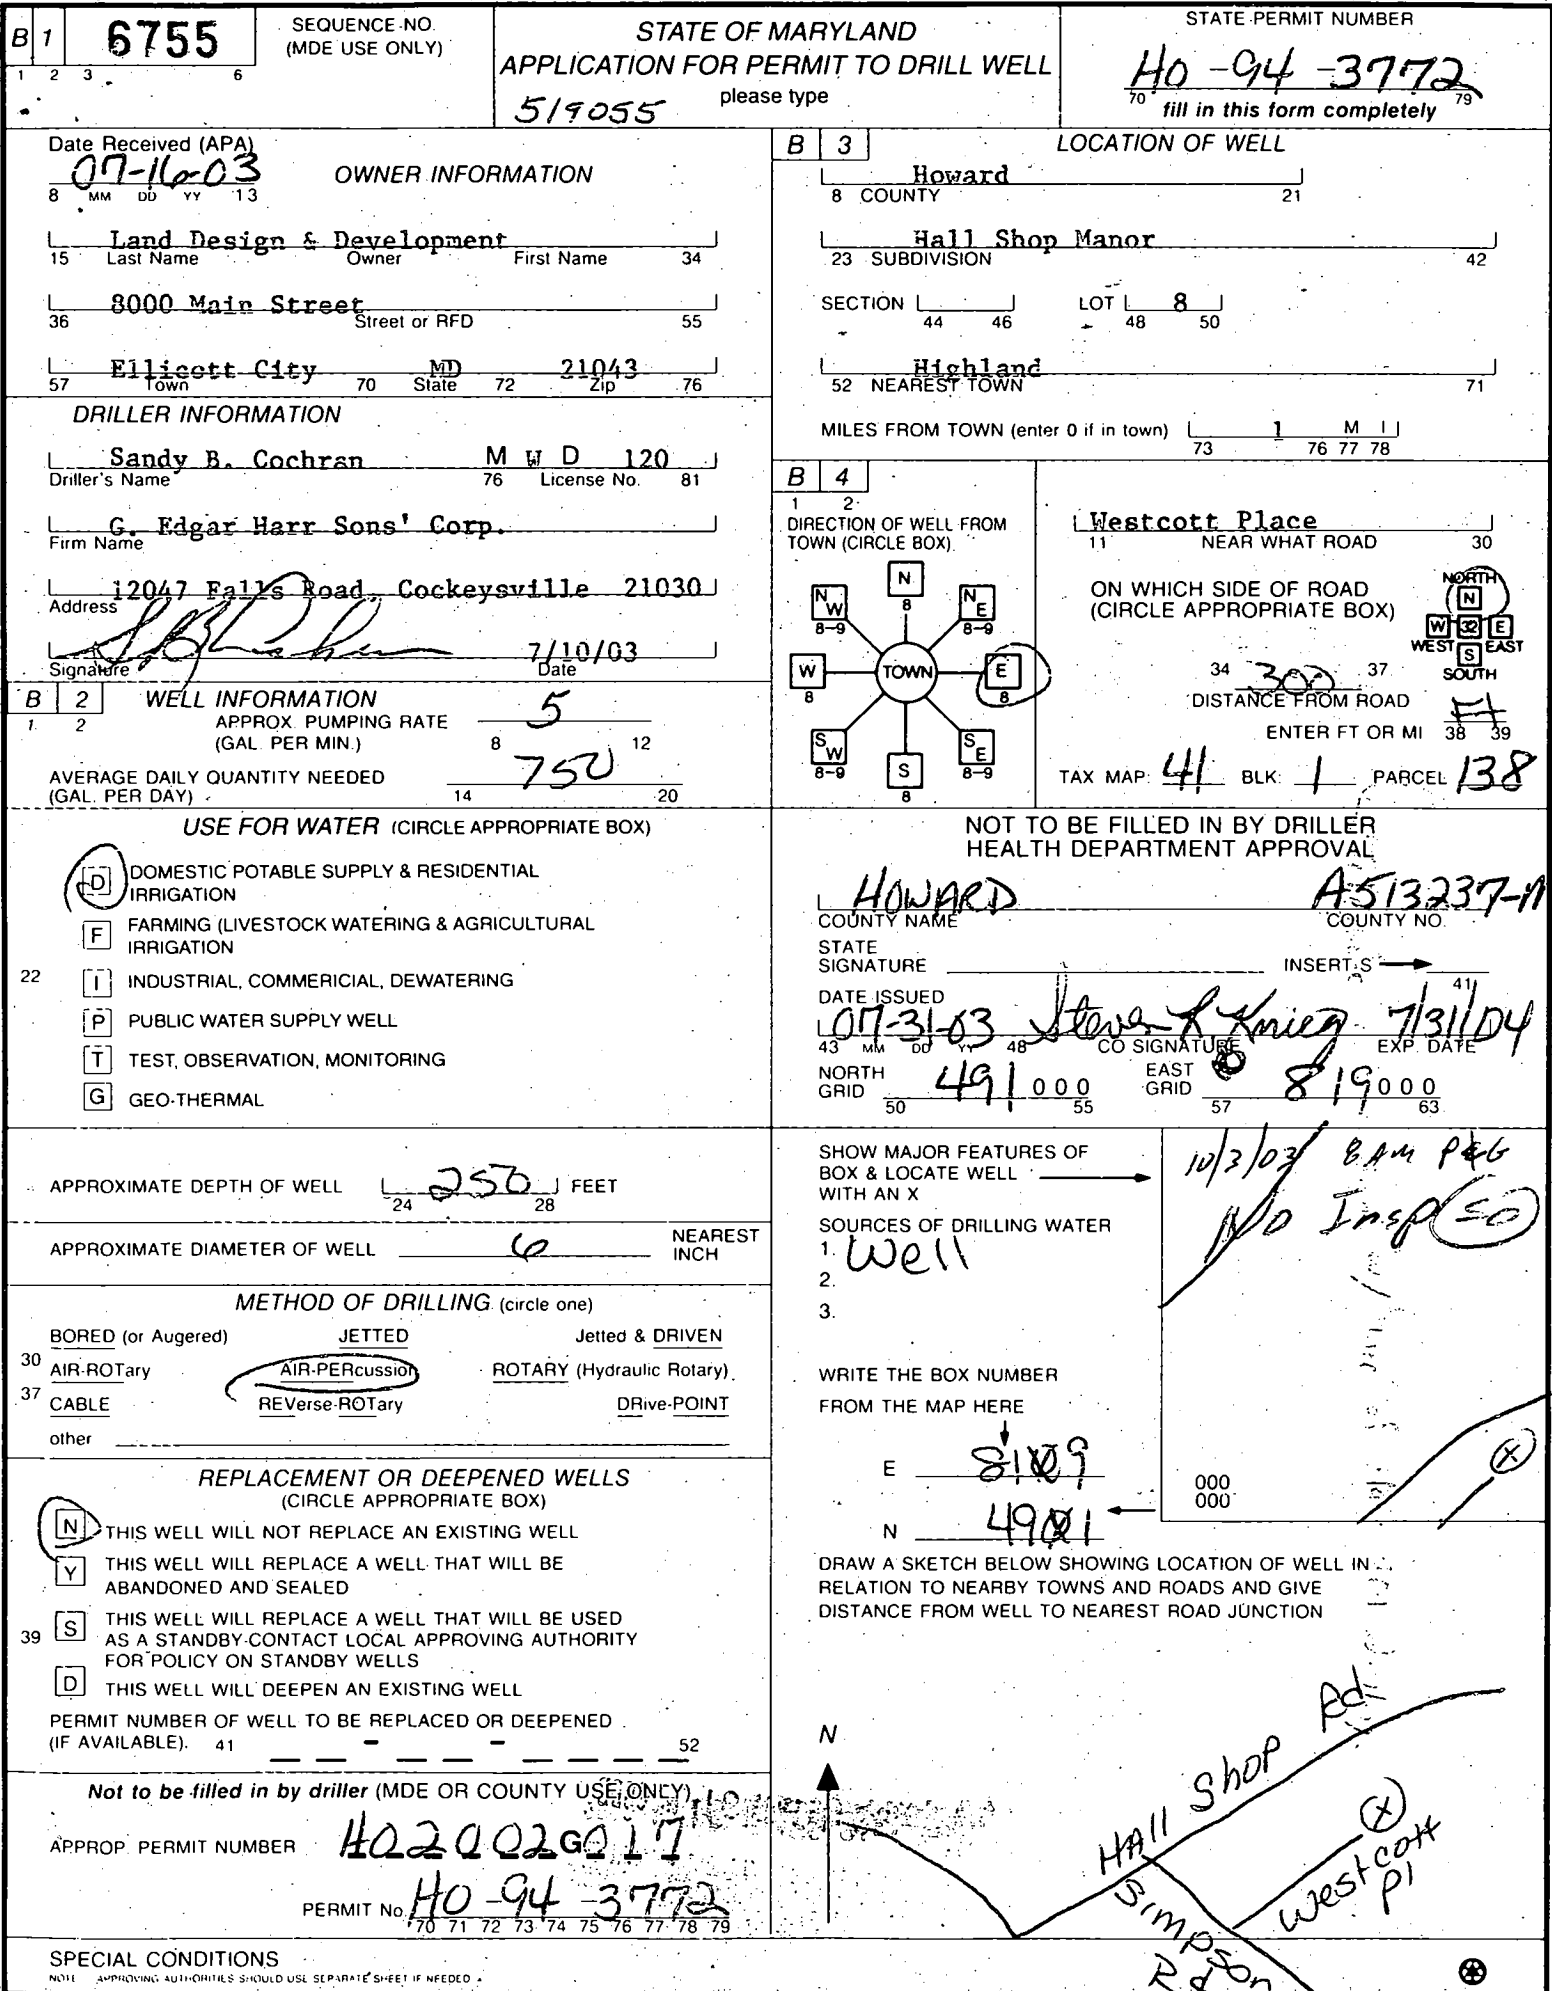 B 1 6755
1 2 3 6
SEQUENCE NO.
(MDE USE ONLY)
STATE OF MARYLAND
APPLICATION FOR PERMIT TO DRILL WELL
please type
519055
STATE PERMIT NUMBER
HO-94-3772
70 79
fill in this form completely
Date Received (APA)
07-16-03
8 MM DD YY 13
OWNER INFORMATION
Land Design & Development
15 Last Name Owner First Name 34
8000 Main Street
36 Street or RFD 55
Ellicott City MD 21043
57 Town 70 State 72 Zip 76
DRILLER INFORMATION
Sandy B. Cochran M W D 120
Driller's Name 76 License No. 81
G. Edgar Harr Sons' Corp.
Firm Name
12047 Falls Road, Cockeysville 21030
Address
7/10/03
Signature Date
B 2 WELL INFORMATION
1 2
APPROX. PUMPING RATE 5
(GAL. PER MIN.) 8 12
AVERAGE DAILY QUANTITY NEEDED 750
(GAL. PER DAY) 14 20
USE FOR WATER (CIRCLE APPROPRIATE BOX)
D DOMESTIC POTABLE SUPPLY & RESIDENTIAL
IRRIGATION
F FARMING (LIVESTOCK WATERING & AGRICULTURAL
IRRIGATION
22 I INDUSTRIAL, COMMERICIAL, DEWATERING
P PUBLIC WATER SUPPLY WELL
T TEST, OBSERVATION, MONITORING
G GEO-THERMAL
APPROXIMATE DEPTH OF WELL 250 FEET
24 28
APPROXIMATE DIAMETER OF WELL 6 NEAREST
INCH
METHOD OF DRILLING (circle one)
BORED (or Augered) JETTED Jetted & DRIVEN
30 AIR-ROTary AIR-PERcussion ROTARY (Hydraulic Rotary)
37 CABLE REVerse-ROTary DRive-POINT
other
REPLACEMENT OR DEEPENED WELLS
(CIRCLE APPROPRIATE BOX)
N THIS WELL WILL NOT REPLACE AN EXISTING WELL
Y THIS WELL WILL REPLACE A WELL THAT WILL BE
ABANDONED AND SEALED
39 S THIS WELL WILL REPLACE A WELL THAT WILL BE USED
AS A STANDBY-CONTACT LOCAL APPROVING AUTHORITY
FOR POLICY ON STANDBY WELLS
D THIS WELL WILL DEEPEN AN EXISTING WELL
PERMIT NUMBER OF WELL TO BE REPLACED OR DEEPENED
(IF AVAILABLE). 41 - - 52
Not to be filled in by driller (MDE OR COUNTY USE ONLY)
APPROP. PERMIT NUMBER HO2002G017
PERMIT No. HO-94-3772
70 71 72 73 74 75 76 77 78 79
SPECIAL CONDITIONS
NOTE APPROVING AUTHORITIES SHOULD USE SEPARATE SHEET IF NEEDED
B 3 LOCATION OF WELL
Howard
8 COUNTY 21
Hall Shop Manor
23 SUBDIVISION 42
SECTION LOT 8
44 46 48 50
Highland
52 NEAREST TOWN 71
MILES FROM TOWN (enter 0 if in town) 1 M I
73 76 77 78
B 4
1 2
DIRECTION OF WELL FROM
TOWN (CIRCLE BOX)
N
8
NW
8-9
NE
8-9
W
8
TOWN
E
8
SW
8-9
S
8
SE
8-9
Westcott Place
11 NEAR WHAT ROAD 30
ON WHICH SIDE OF ROAD
(CIRCLE APPROPRIATE BOX)
NORTH
N
W 32 E
WEST EAST
S
SOUTH
34 300 37
DISTANCE FROM ROAD
ENTER FT OR MI Ft
38 39
TAX MAP: 41 BLK: 1 PARCEL 138
NOT TO BE FILLED IN BY DRILLER
HEALTH DEPARTMENT APPROVAL
HOWARD
COUNTY NAME COUNTY NO.
STATE
SIGNATURE INSERT S
41
DATE ISSUED
07-31-03 Steven R Krieg 7/31/04
43 MM DD YY 48 CO SIGNATURE EXP. DATE
NORTH
GRID 491 000
50 55
EAST
GRID 819 000
57 63
SHOW MAJOR FEATURES OF
BOX & LOCATE WELL
WITH AN X
SOURCES OF DRILLING WATER
1. Well
2.
3.
10/3/03 8 AM P&G
No Insp
WRITE THE BOX NUMBER
FROM THE MAP HERE
E
N
000
000
X
DRAW A SKETCH BELOW SHOWING LOCATION OF WELL IN
RELATION TO NEARBY TOWNS AND ROADS AND GIVE
DISTANCE FROM WELL TO NEAREST ROAD JUNCTION
N
HAll Shop Rd
Simpson Rd
X
Westcott Pl